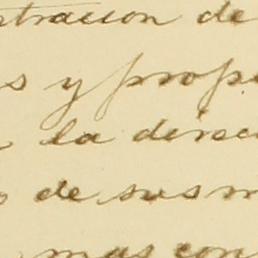 stracion de
s y prop
la direc
o de sus m
mas con